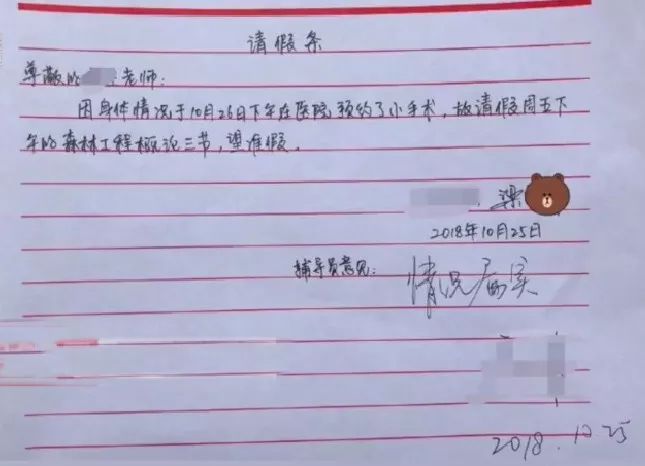 请假条
尊敬的 老师:
因身体情况于10月26日下午在医院预约了小手术,故请假周五下
午的森林工程概论三节,望准假。
梁
2018年10月25日
辅导员意见:
情况属实
2018.10.25